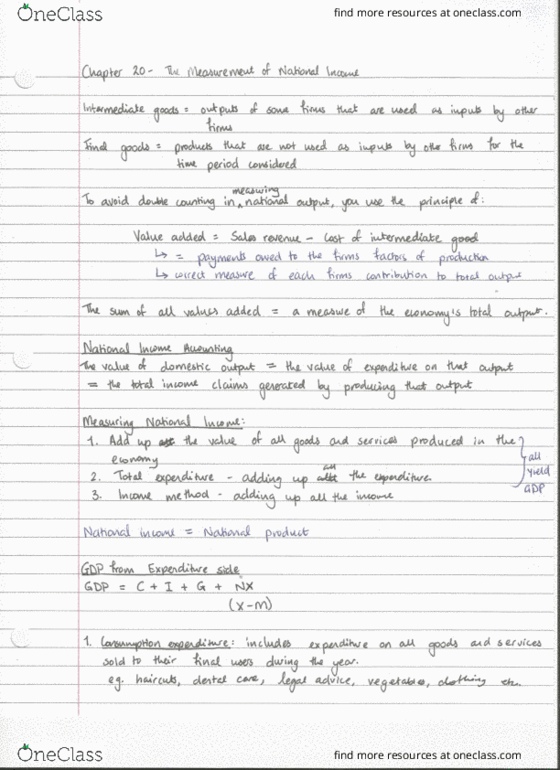 OneClass
find more resources at oneclass.com
Chapter 20 - The Measurement of National Income
Intermediate goods = outputs of some firms that are used as inputs by other
firms
Final goods = products that are not used as inputs by other firms for the
time period considered
measuring
To avoid double counting in ^ national output, you use the principle of:
Value added = Sales revenue - cost of intermediate good
↳ = payments owed to the firms factors of production
↳ correct measure of each firms contribution to total output
The sum of all values added = a measure of the economy's total output.
National Income Accounting
The value of domestic output = the value of expenditure on that output
= the total income claims generated by producing that output
Measuring National Income:
1. Add up the value of all goods and services produced in the
economy
2. Total expenditure - adding up all the expenditure.
3. Income method - adding up all the income
all
yield
GDP
National income = National product
GDP from Expenditure side
GDP = C + I + G + NX
(x-m)
1. Consumption expenditure: includes expenditure on all goods and services
sold to their final users during the year.
eg. haircuts, dental care, legal advice, vegetables, clothing etc.
OneClass
find more resources at oneclass.com